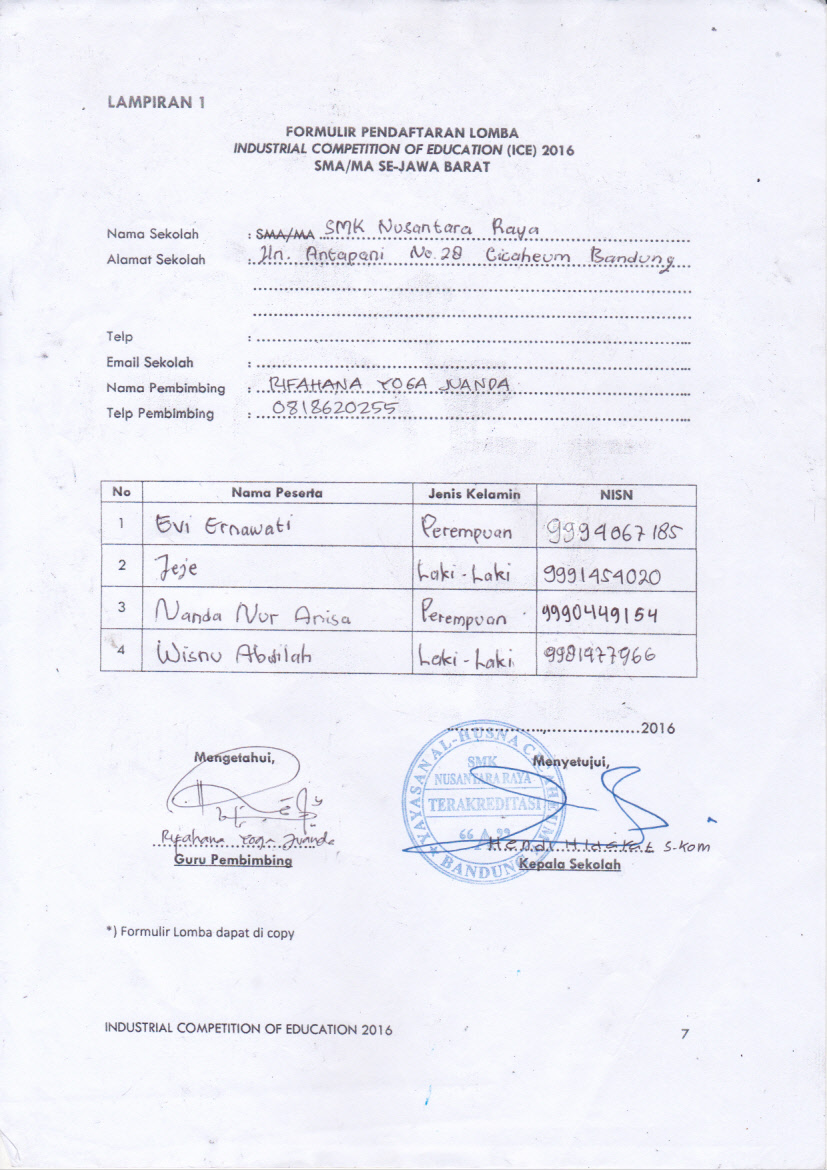 LAMPIRAN 1
FORMULIR PENDAFTARAN LOMBA
INDUSTRIAL COMPETITION OF EDUCATION (ICE) 2016
SMA/MA SE-JAWA BARAT
Nama Sekolah : SMA/MA SMK Nusantara Raya
Alamat Sekolah : Jln. Antapani No.28 Cicaheum Bandung
Telp :
Email Sekolah :
Nama Pembimbing : RIFAHANA YOGA JUANDA
Telp Pembimbing : 0818620255
No Nama Peserta Jenis Kelamin NISN
1 Evi Ernawati Perempuan 9994067185
2 Jeje Laki-Laki 9991454020
3 Nanda Nur Anisa Perempuan 9990449154
4 Wisnu Abdilah Laki-Laki 9981977966
2016
Mengetahui, Menyetujui,
YAYASAN AL-HUSNA CICAHEUM
SMK
NUSANTARA RAYA
TERAKREDITASI
BANDUNG
Rifahana Yoga Juanda Hendi Hidayat S.Kom
Guru Pembimbing Kepala Sekolah
*) Formulir Lomba dapat di copy
INDUSTRIAL COMPETITION OF EDUCATION 2016 7